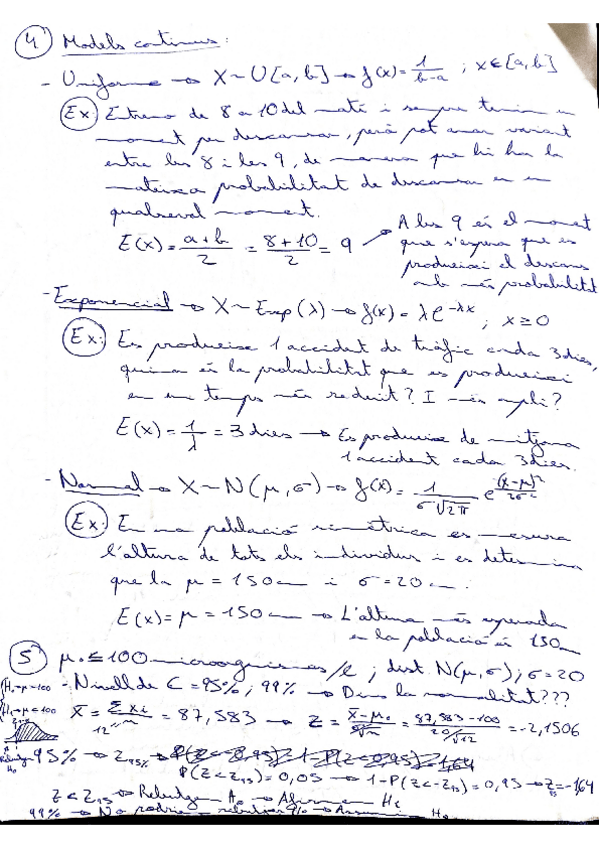 4 Models continus:
- Uniforme → X ~ U[a, b] → f(x) = 1/(b-a) ; x ∈ [a, b]
Ex: Entreno de 8 a 10 del matí i sempre tenim un
moment per descansar, però pot anar variant
entre les 8 i les 9, de manera que hi ha la
mateixa probabilitat de descansar en un
qualsevol moment.
E(x) = (a+b)/2 = (8+10)/2 = 9 → A les 9 és el moment
que s'espera que es
produeixi el descans
amb més probabilitat
- Exponencial → X ~ Exp(λ) → f(x) = λe^-λx ; x ≥ 0
Ex: Es produeixe 1 accident de tràfic cada 3 dies,
quina és la probabilitat que es produeixi
en un temps més reduït? I més ampli?
E(x) = 1/λ = 3 dies → Es produeixe de mitjana
1 accident cada 3 dies.
- Normal → X ~ N(μ, σ) → f(x) = 1/(σ√2π) e^((x-μ)²/2σ²)
Ex: En una població es mesura
l'altura de tots els individus i es determina
que la μ = 150 cm i σ = 20 cm.
E(x) = μ = 150 cm → L'altura més esperada
en la població és 150 cm
5 μ₀ ≤ 100 microorganismes/l ; dist. N(μ, σ) ; σ = 20
- Nivell de C = 95% ; 99% → Dins la normalitat???
x̄ = Σxi/12 = 87,583 → Z = (x̄-μ₀)/(σ/√n) = (87,583-100)/(20/√12) = -2,1506
95% → Z95%
P(Z<Z95) = 0,05 → 1-P(Z<-Z95) = 0,95 → Z = -1,64
Z < Z95 → Rebutgem H₀ → Afirmem H₁
99% → No podríem rebutjar → Assumim H₀